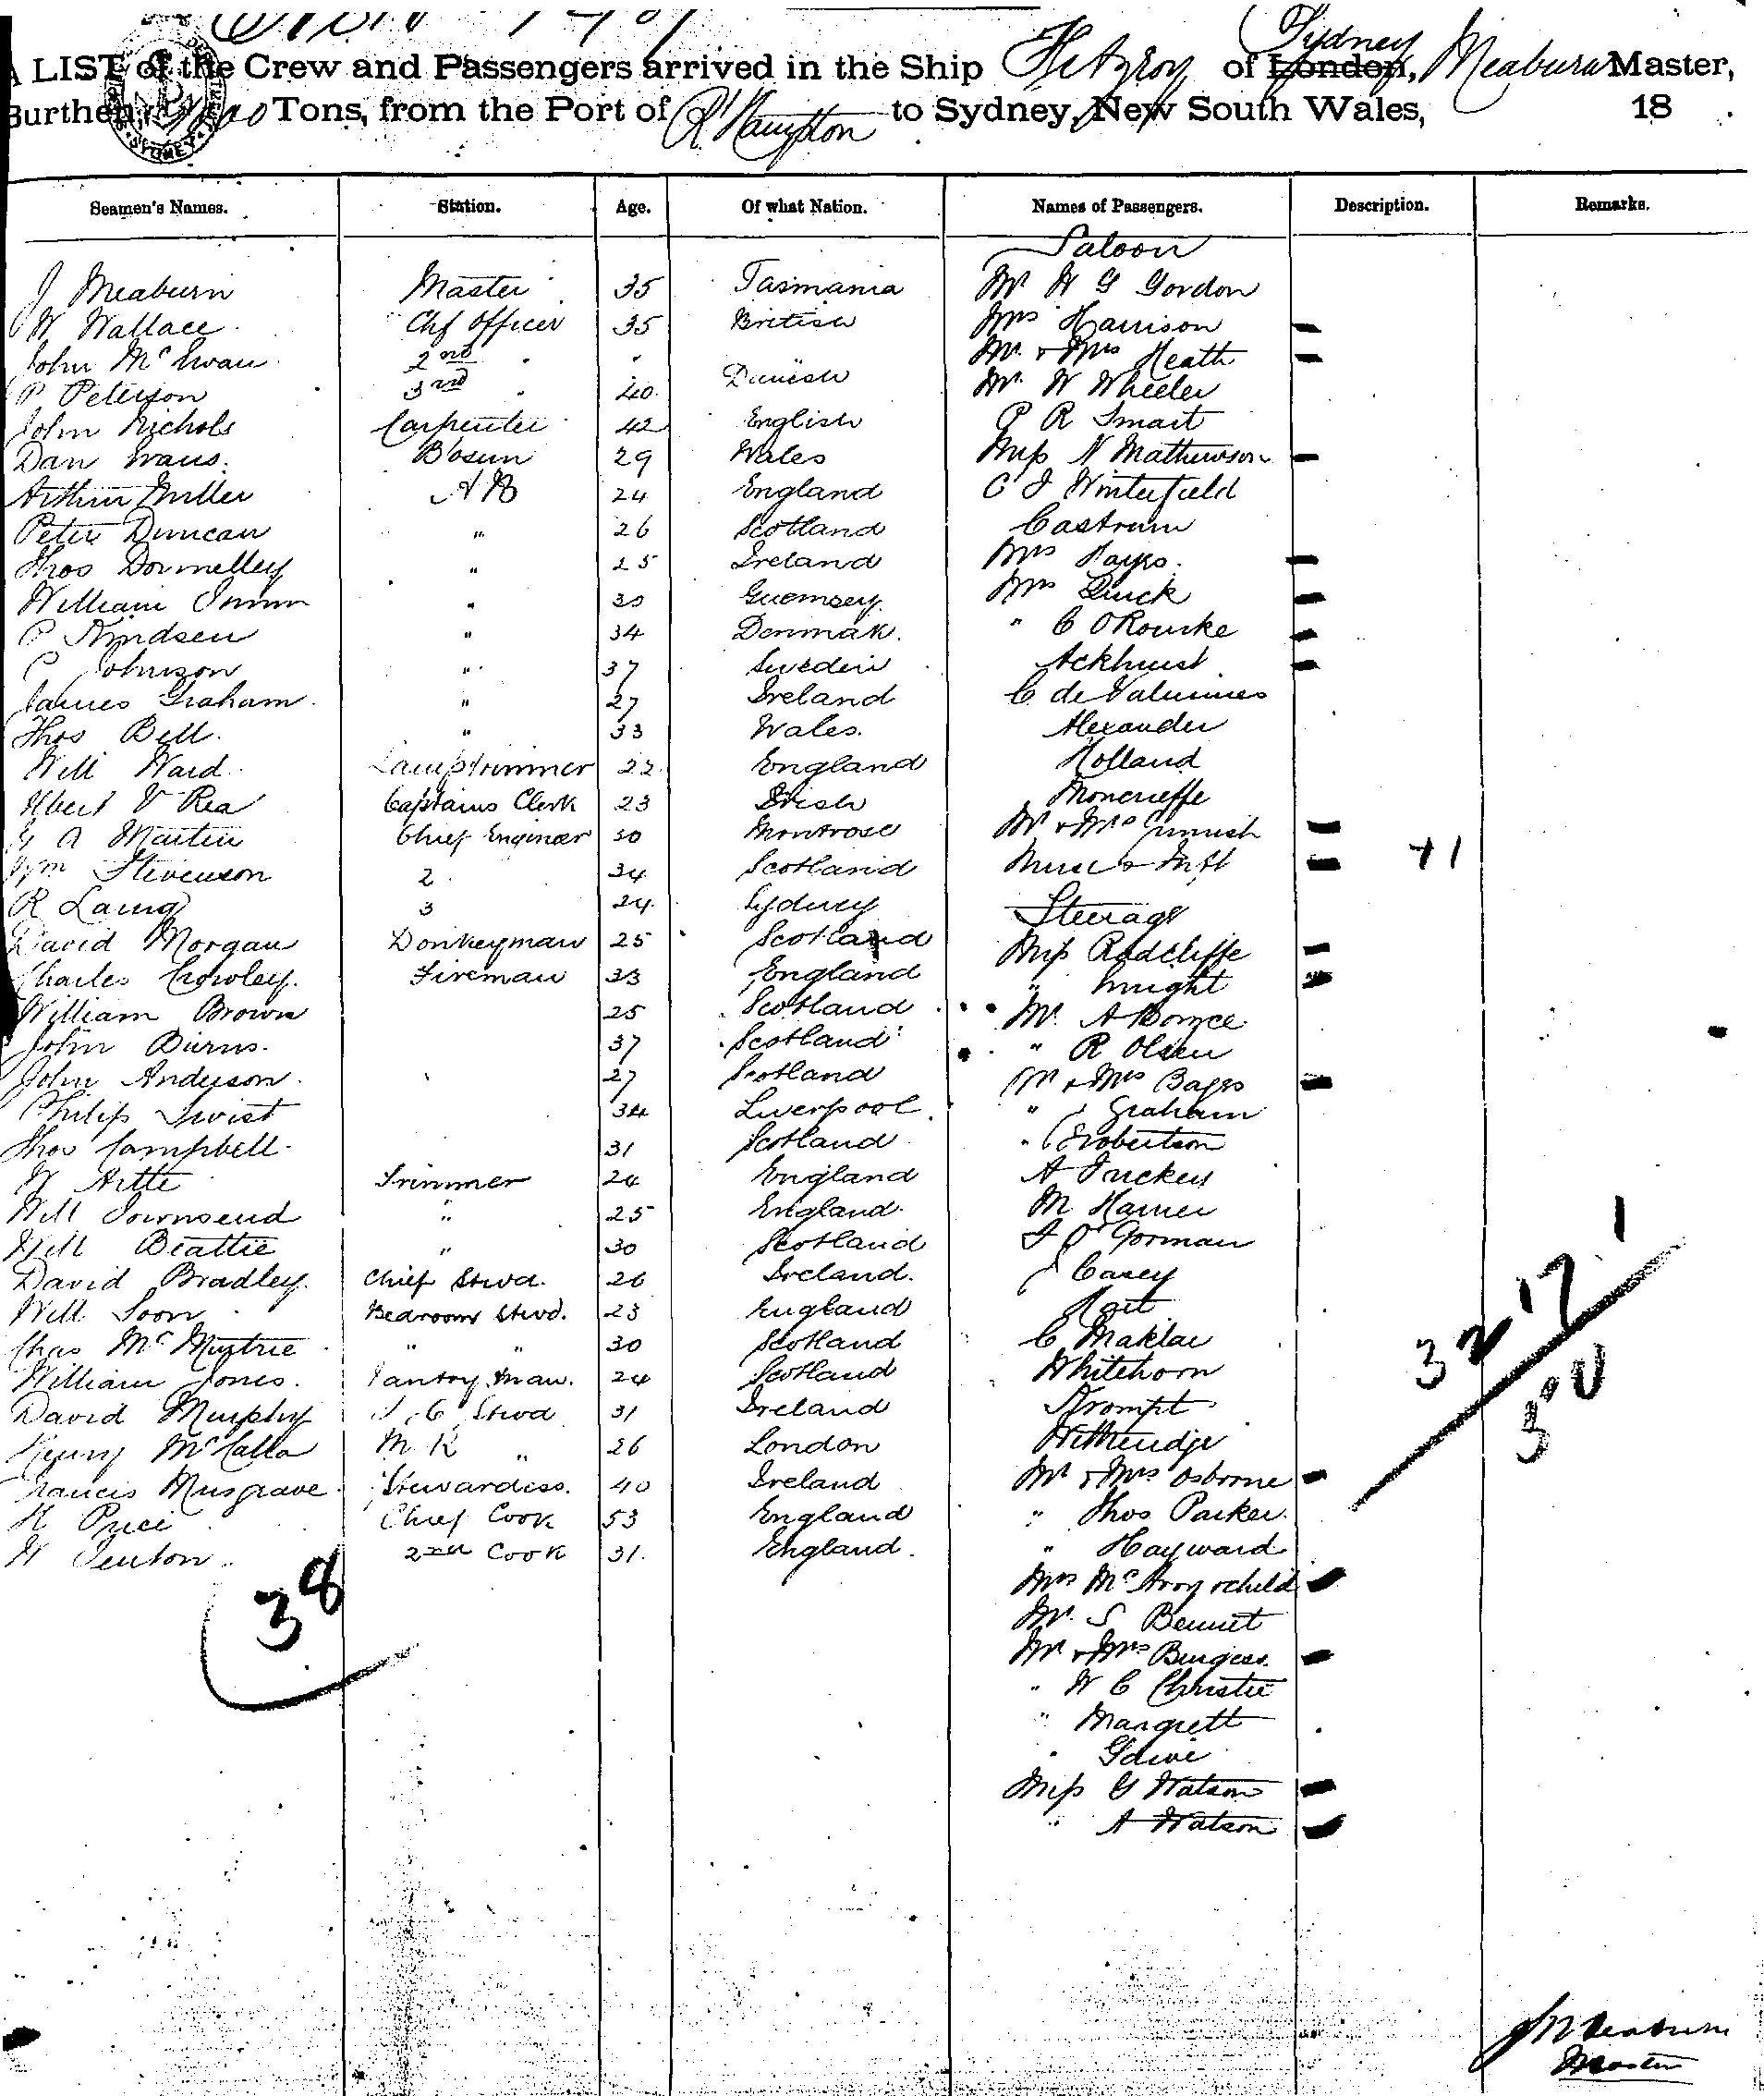 LIST of the Crew and Passengers arrived in the Ship Fitzroy of London, Sydney Meaburn Master,
Burthen Tons, from the Port of R'Hampton to Sydney, New South Wales, 18
Seamen's Names. Station. Age. Of what Nation. Names of Passengers. Description. Remarks.
Saloon
J Meaburn Master 35 Tasmania Mr W G Gordon
W Wallace Chf Officer 35 British Mrs Harrison
John McEwan 2nd " Mr & Mrs Heath
P Peterson 3rd " 40 Danish Mr W Wheeler
John Nichols Carpenter 42 English P R Smart
Dan Evans. Bosun 29 Wales Miss N Mathewson
Arthur Miller AB 24 England C J Winterfield
Peter Duncan " 26 Scotland Castrum
Thos Donnelley " 25 Ireland Mrs
William " 30 Guernsey. Mrs Quick
P Kmdsen " 34 Denmak. " C ORourke
C Johnson " 37 Sweden Ackhurst
James Graham " 27 Ireland C. de
Thos Bell. " 33 Wales. Alexander
Will Ward Lamptrimmer 22 England Holland
Albert V Rea Captains Clerk 23 Irish Moncrieffe
G A Martin Chief Engineer 30 Montrose Mr & Mrs
Wm Stevenson 2 34 Scotland Nurse & Inft +1
R Laing 3 24 Sydney Steerage
David Morgan Donkeyman 25 Scotland Miss Radcliffe
Charles Crowley. Fireman 33 England "
William Brown 25 Scotland Mr. A
John Burns. 37 Scotland " R Olsen
John Anderson. 27 Scotland Mr & Mrs Baggs
Philip Twist 34 Liverpool " J Graham
Thos Campbell. 31 Scotland " Robertson
W Trimmer 24 England A Tuckey
Will Townsend " 25 England. M
Will Beattie " 30 Scotland J O'Gorman
David Bradley. Chief Stwd. 26 Ireland. J Casey
Will Soon Bedroom Stwd. 23 England
Chas Mc " " 30 Scotland C
William Jones. Pantry Man. 24 Scotland Whitehorn
David Murphy S. C. Stwd 31 Ireland
Henry McCalla M. R " 26 London
Francis Musgrave Stewardess. 40 Ireland Mr & Mrs Osborne
H Price Chief Cook 53 England " Thos Parker.
W Fenton. 2nd Cook 31. England. " Hayward
38 Mrs & child
Mr. S Bennet
Mr & Mrs Burgess.
" W C Christie
" Mangrett
"
Miss G Watson
" A Watson
32 17 1
30
J Meaburn
Master